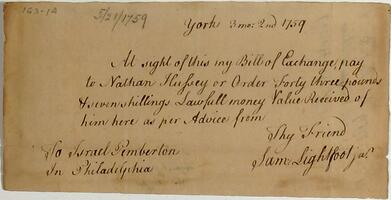 163-1A
5/21/1759
York 3 mo: 2nd 1759
At sight of this my Bill of Exchange, pay
to Nathan Hussey or Order Forty three pounds
& seven shillings Lawfull money Value Received of
him here as per Advice from
Thy Friend
To Israel Pemberton
Sam. Lightfoot jur.
In Philadelphia